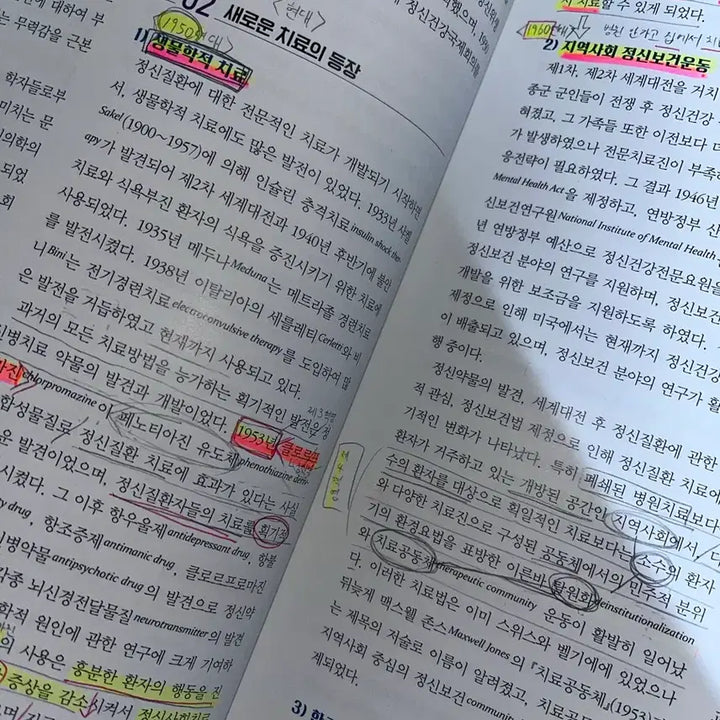 에 대하여 부
는 무력감을 근본
학자들로부
미치는 문
의학의
되었
회
02 새로운 치료의 등장
<현대>
1950
1) 생물학적 치료
정신질환에 대한 전문적인 치료가 개발되기 시작하면
서, 생물학적 치료에도 많은 발전이 있었다. 1933년 사켈
Sakel(1900~1957)에 의해 인슐린 충격치료insulin shock ther-
apy가 발견되어 제2차 세계대전과 1940년 후반기에 불안
치료와 식욕부진 환자의 식욕을 증진시키기 위한 치료에
사용되었다. 1935년 메두나Meduna는 메트라졸 경련치료
를 발전시켰다. 1938년 이탈리아의 세를레티Cerletti와 비
니Bini는 전기경련치료electroconvulsive therapy를 도입하여 많
은 발전을 거듭하였고 현재까지 사용되고 있다.
과거의 모든 치료방법을 능가하는 회기적인 발전은 정
신병치료 약물의 발견과 개발이었다. 1953년 클로르프
마진chlorpromazine이 페노티아진 유도체phenothiazine deriv-
합성물질로 정신질환 치료에 효과가 있다는 사실
운 발견이었으며, 정신질환자들의 치료를 회기적
시켰다. 그 이후 항우울제antidepressant drug, 항불
ty drug, 항조증제antimanic drug, 클로르프로마진
신병약물antipsychotic drug의 발견으로 정신약
각종 뇌신경전달물질neurotransmitter의 발견
학적 원인에 관한 연구에 크게 기여하
의 사용은 흥분한 환자의 행동을 진
증상을 감소시켜서 정신사회치료
치료할 수 있게 되었다.
<1960
2) 지역사회 정신보건운동
제1차, 제2차 세계대전을 거치
종군 군인들이 전쟁 후 정신건강
혀졌고, 그 가족들 또한 이전보다 더
가 발생하였으나 전문치료진이 부족하
응전략이 필요하였다. 그 결과 1946년
Mental Health Act을 제정하고, 연방정부 산
신보건연구원National Institute of Mental Health
년 연방정부 예산으로 정신건강전문요원을
정신보건 분야의 연구를 지원하며, 정신보건
개발을 위한 보조금을 지원하도록 하였다.
제정으로 인해 미국에서는 현재까지 정신건강
이 배출되고 있으며, 정신보건 분야의 연구가 활
행 중이다.
정신약물의 발견, 세계대전 후 정신질환에 관한
적 관심, 정신보건법 제정으로 인해 정신질환 치료에
기적인 변화가 나타났다. 특히 폐쇄된 병원치료보다
환자가 거주하고 있는 개방된 공간인 지역사회에서, 다
수의 환자를 대상으로 획일적인 치료보다는 소수의 환자
와 다양한 치료진으로 구성된 공동체에서의 민주적 분위
기의 환경요법을 표방한 이른바 탈원화deinstitutionalization
와 치료공동체therapeutic community 운동이 활발히 일어났
다. 이러한 치료법은 이미 스위스와 벨기에에 있었으나
뒤늦게 맥스웰 존스Maxwell Jones의 『치료공동체』(1953)
는 제목의 저술로 이름이 알려졌고, 치료공동
지역사회 중심의 정신보건community
계되었다.
3)